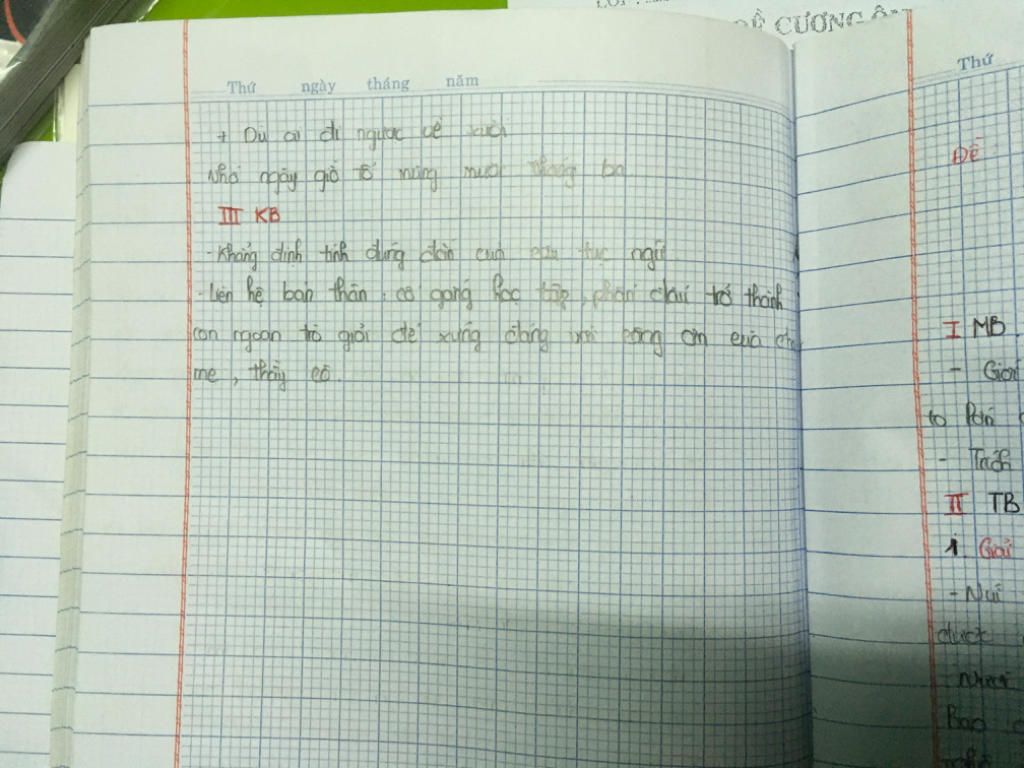 ĐỀ CƯƠNG ÔN
Thứ ngày tháng năm
+ Dù ai đi ngược về xuôi
Nhớ ngày giỗ tổ mùng mười tháng ba
III KB
- Khẳng định tính đúng đắn của câu tục ngữ
- Liên hệ bản thân, cố gắng học tập, phấn đấu trở thành
con ngoan trò giỏi để xứng đáng với công ơn của cha
mẹ, thầy cô.
Thứ
Đề
I MB
- Giới
- Trích
II TB
1. Giải
- Núi
được
Bao